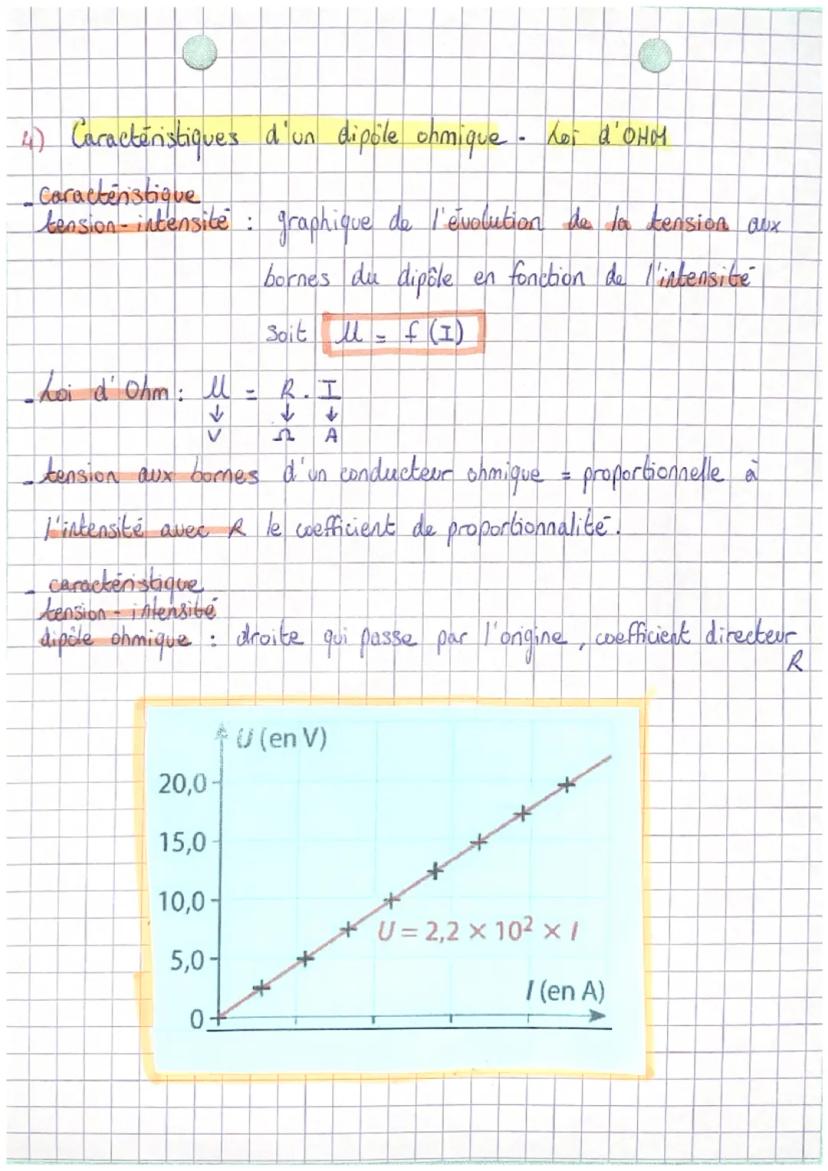 4) Caractéristiques d'un dipôle ohmique - Loi d'OHM
- caractéristique
tension-intensité : graphique de l'évolution de la tension aux
bornes du dipôle en fonction de l'intensité
soit U = f (I)
- Loi d'Ohm : U = R . I
↓ ↓ ↓
V Ω A
- tension aux bornes d'un conducteur ohmique = proportionnelle à
l'intensité avec R le coefficient de proportionnalité.
- caractéristique
tension-intensité
dipôle ohmique : droite qui passe par l'origine, coefficient directeur
R
U (en V)
20,0
15,0
10,0
U = 2,2 × 10² × I
5,0
I (en A)
0